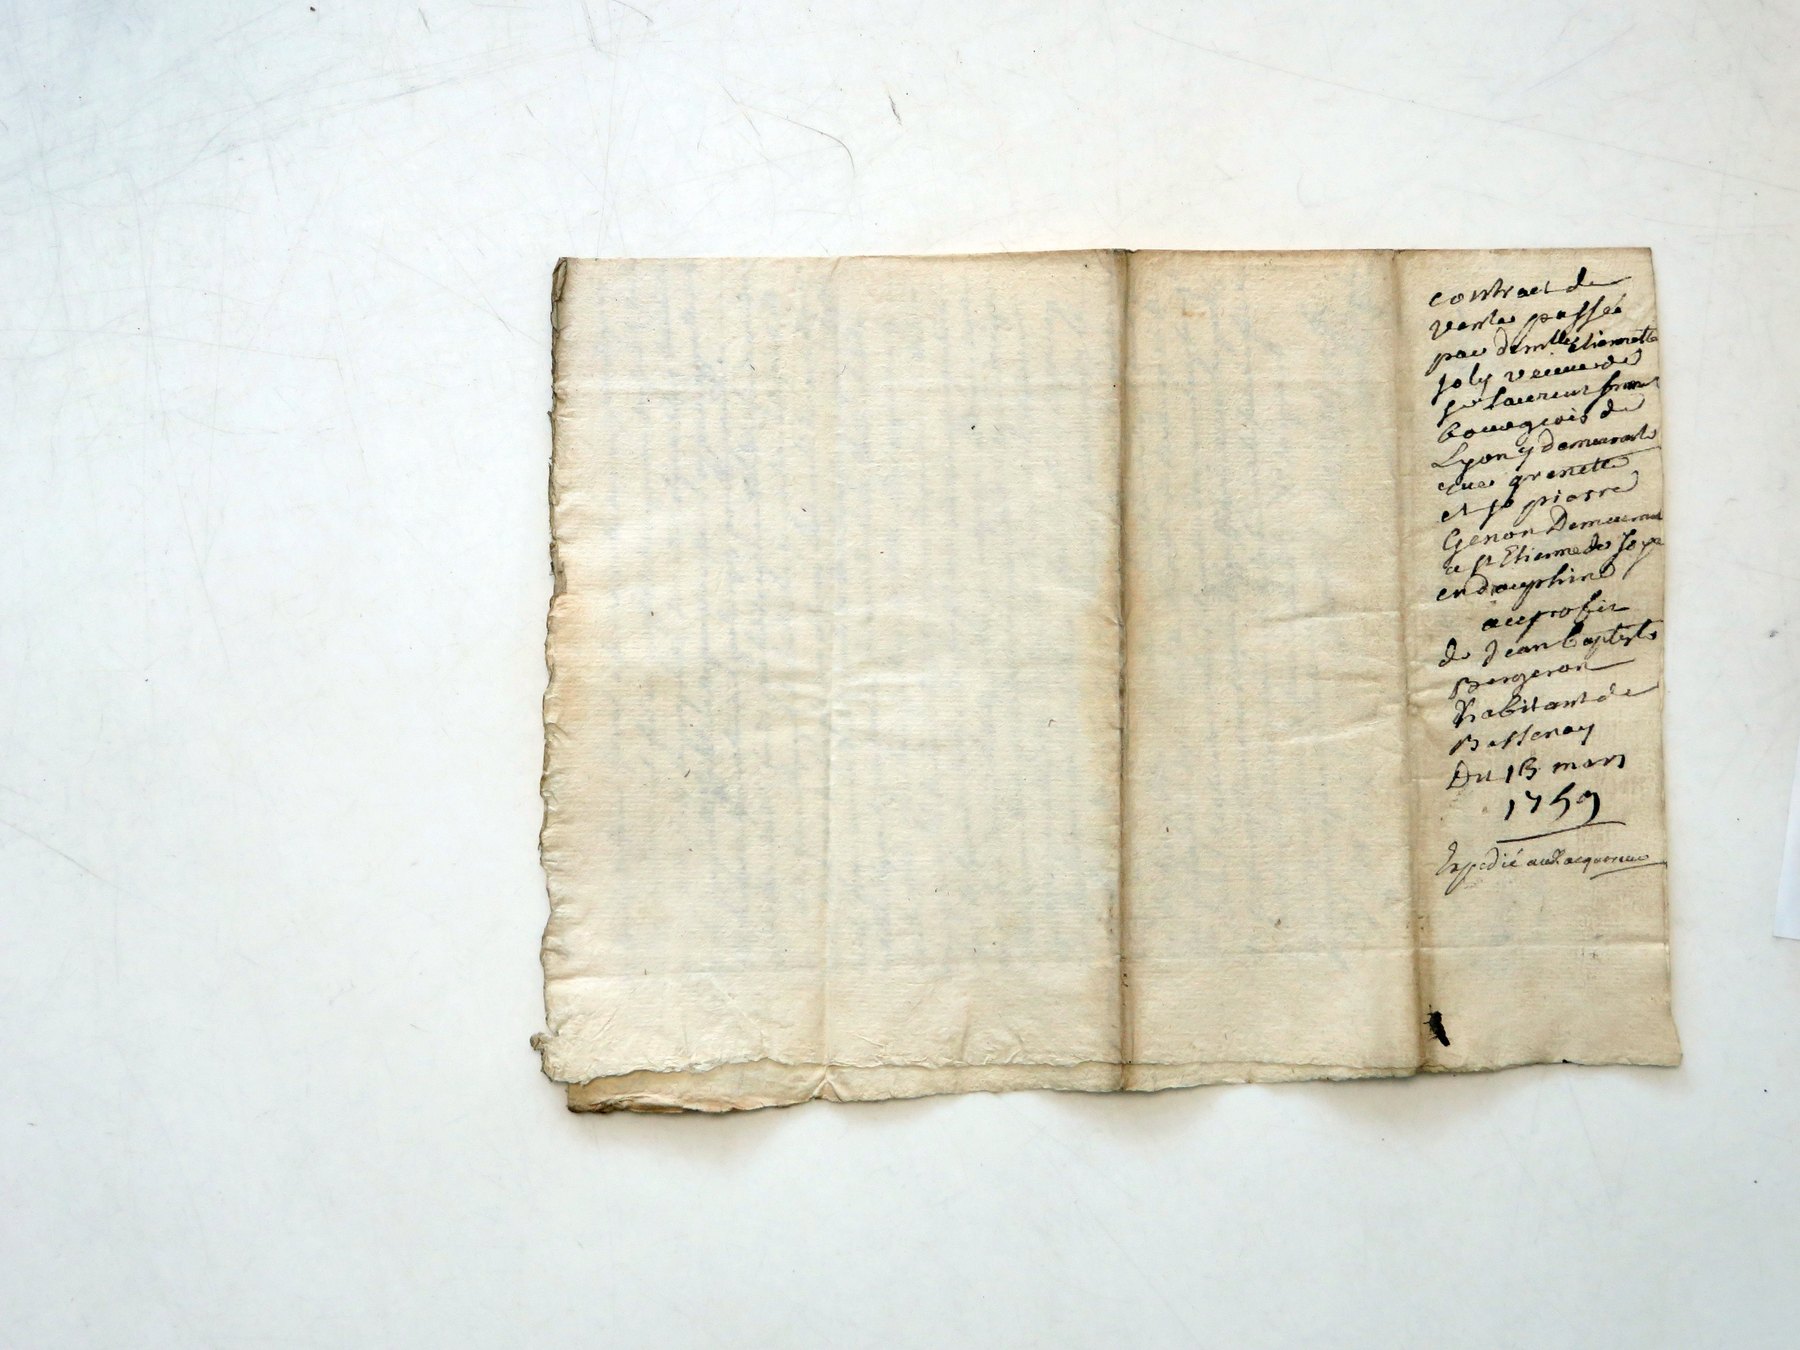 contract de
vente passée
par demlle Etiennette
Joly veuve de
sr Laurent
bourgeois de
Lyon y demeurante
rue grenette
et sr pierre
Genon Demeurant
a st Etienne de
en dauphiné
au profit
de Jean baptiste
Bergeron
habitant de
Bessenay
Du 13 mars
1759
Expedié aud. acquereur